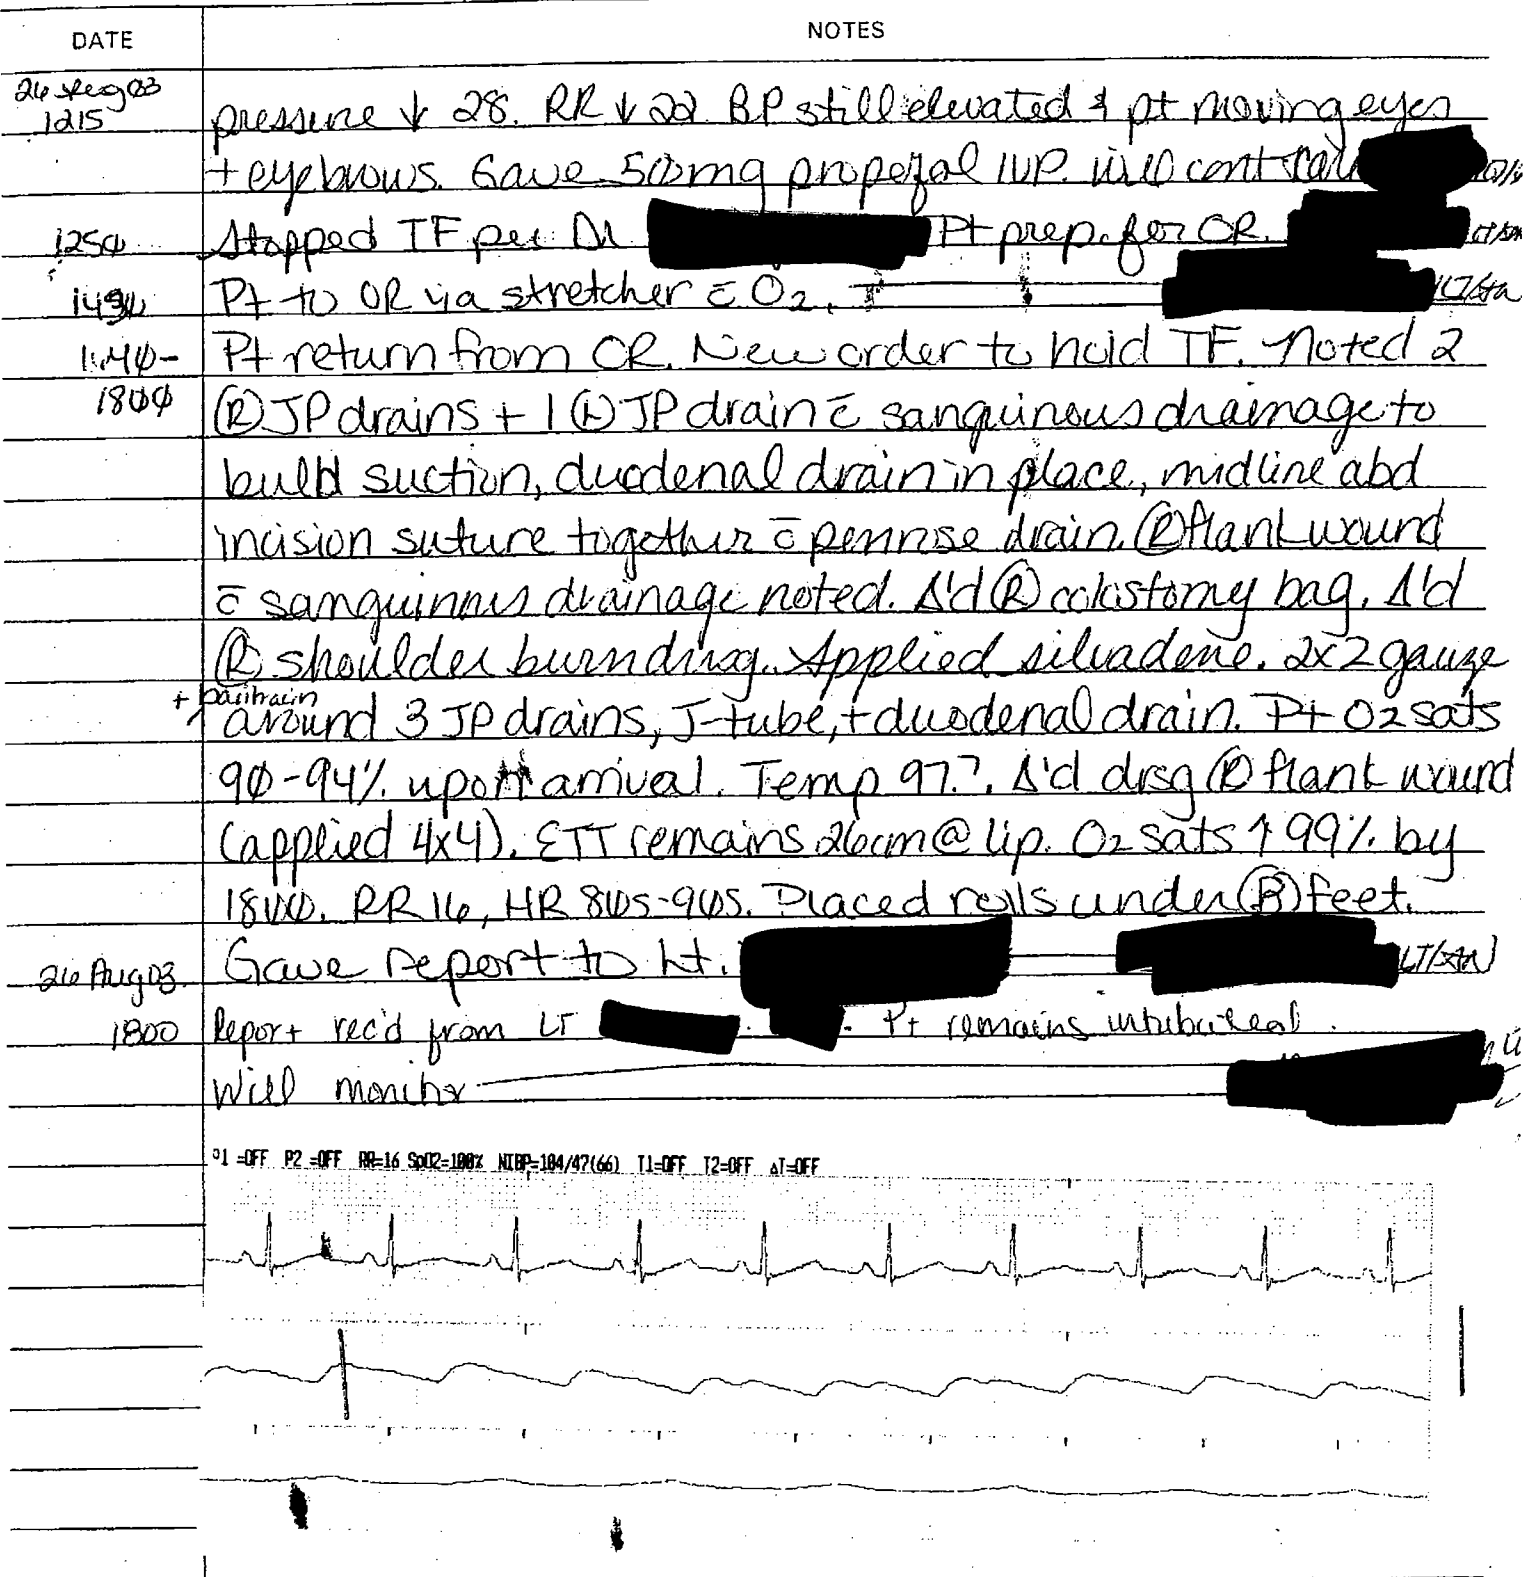 DATE NOTES
26 Aug 03
1215 pressure ↓ 28. RR ↓ 22 BP still elevated & pt moving eyes
+ eyebrows. Gave 50mg propofal IVP. Will cont
1250 Stopped TF per Dr Pt prep. for OR.
Pt to OR via stretcher c̄ O2.
Pt return from OR. New order to hold TF. Noted 2
1800 Ⓡ JP drains + 1 Ⓛ JP drain c̄ sanguinous drainage to
bulb suction, duodenal drain in place, midline abd
incision suture together c̄ penrose drain. Ⓡ flank wound
c̄ sanguinous drainage noted. Δ'd Ⓡ colostomy bag. Δ'd
Ⓡ shoulder burn drsg. Applied silvadene. 2x2 gauze
+
around 3 JP drains, J-tube, + duodenal drain. Pt O2 sats
90-94% upon arrival. Temp 97.7. Δ'd drsg Ⓡ flank wound
(applied 4x4). ETT remains 26cm @ lip. O2 sats ↑ 99% by
1800. RR 16, HR 80s-90s. Placed rolls under Ⓑ feet.
Gave report to Lt. LT/AN
26 Aug 03
1800 Report rec'd from LT . Pt remains intubated.
Will monitor
P1 =OFF P2 =OFF RR=16 SpO2=100% NIBP=104/47(66) T1=OFF T2=OFF ΔT=OFF